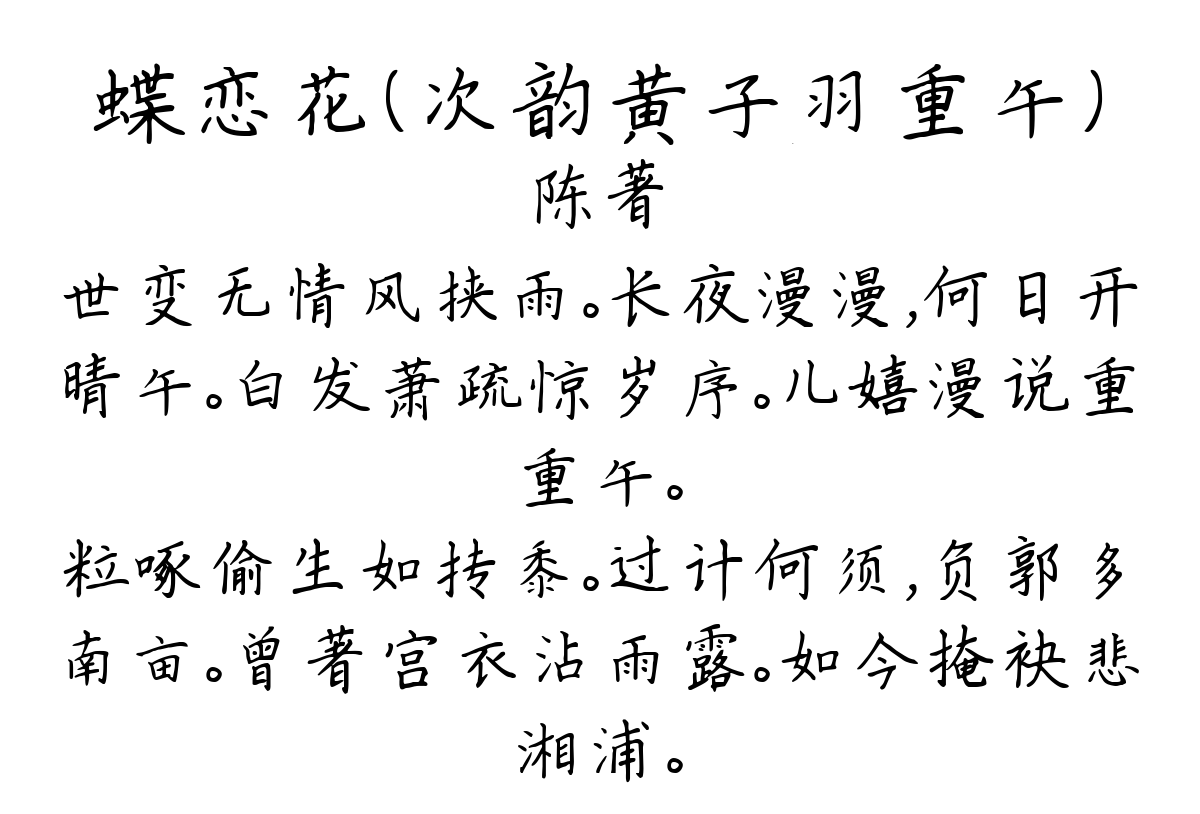 蝶恋花(次韵黄子羽重午)
陈著
世变无情风挟雨。长夜漫漫,何日开
晴午。白发萧疏惊岁序。儿嬉漫说重
重午。
粒啄偷生如抟黍。过计何须,负郭多
南亩。曾著宫衣沾雨露。如今掩袂悲
湘浦。